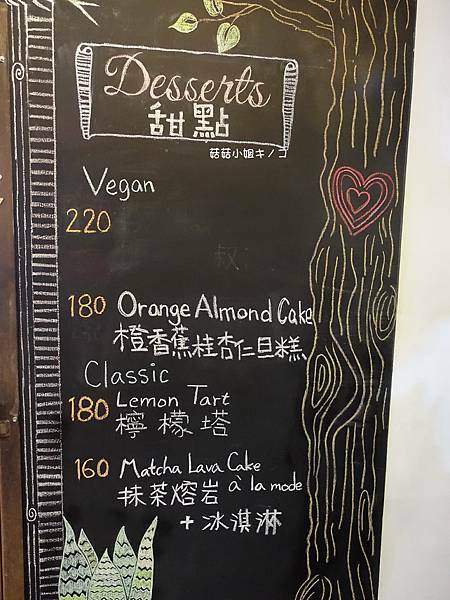 Desserts
甜點
菇菇小姐キノコ
Vegan
220
180 Orange Almond Cake
橙香蕉桂杏仁旦糕
Classic
180 Lemon Tart
檸檬塔
160 Matcha Lava Cake
抹茶熔岩 à la mode
+冰淇淋